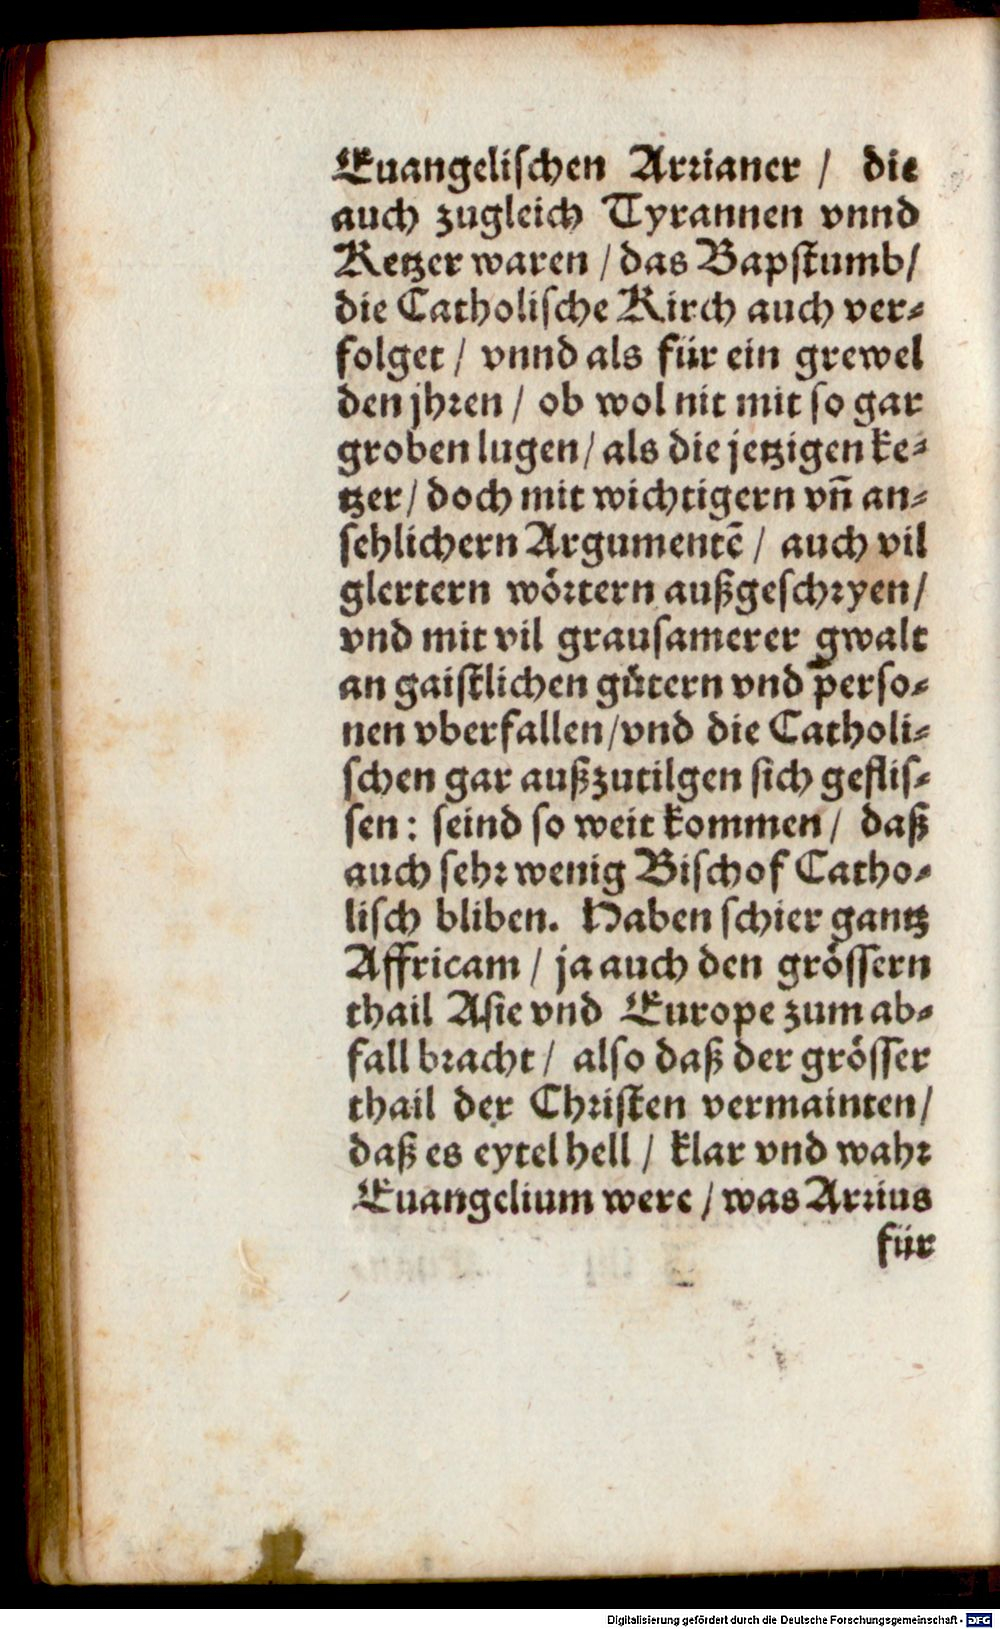 Euangelischen Arrianer / die
auch zugleich Tyrannen vnnd
Ketzer waren / das Bapstumb/
die Catholische Kirch auch ver-
folget / vnnd als für ein grewel
den jhren / ob wol nit mit so gar
groben lugen / als die jetzigen ke-
tzer / doch mit wichtigern vn̄ an-
sehlichern Argumentē / auch vil
glertern wörtern außgeschryen /
vnd mit vil grausamerer gwalt
an gaistlichen gütern vnd perso-
nen vberfallen / vnd die Catholi-
schen gar außzutilgen sich geflis-
sen : seind so weit kommen / daß
auch sehr wenig Bischof Catho-
lisch bliben. Haben schier gantz
Affricam / ja auch den grössern
thail Asie vnd Europe zum ab-
fall bracht / also daß der grösser
thail der Christen vermainten /
daß es eytel hell / klar vnd wahr
Euangelium were / was Arrius
für
Digitalisierung gefördert durch die Deutsche Forschungsgemeinschaft - DFG